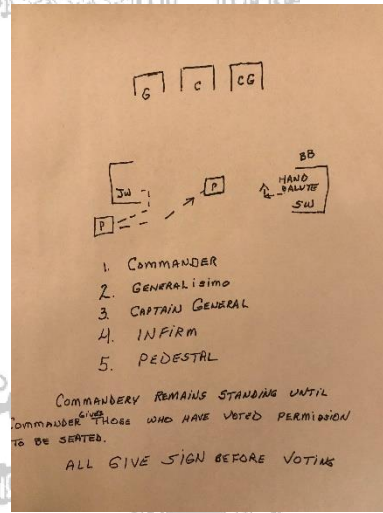 G C CG
BB
JW P HAND
SALUTE
P SW
1. COMMANDER
2. GENERALISIMO
3. CAPTAIN GENERAL
4. INFIRM
5. PEDESTAL
COMMANDERY REMAINS STANDING UNTIL
COMMANDER GIVES THOSE WHO HAVE VOTED PERMISSION
TO BE SEATED.
ALL GIVE SIGN BEFORE VOTING